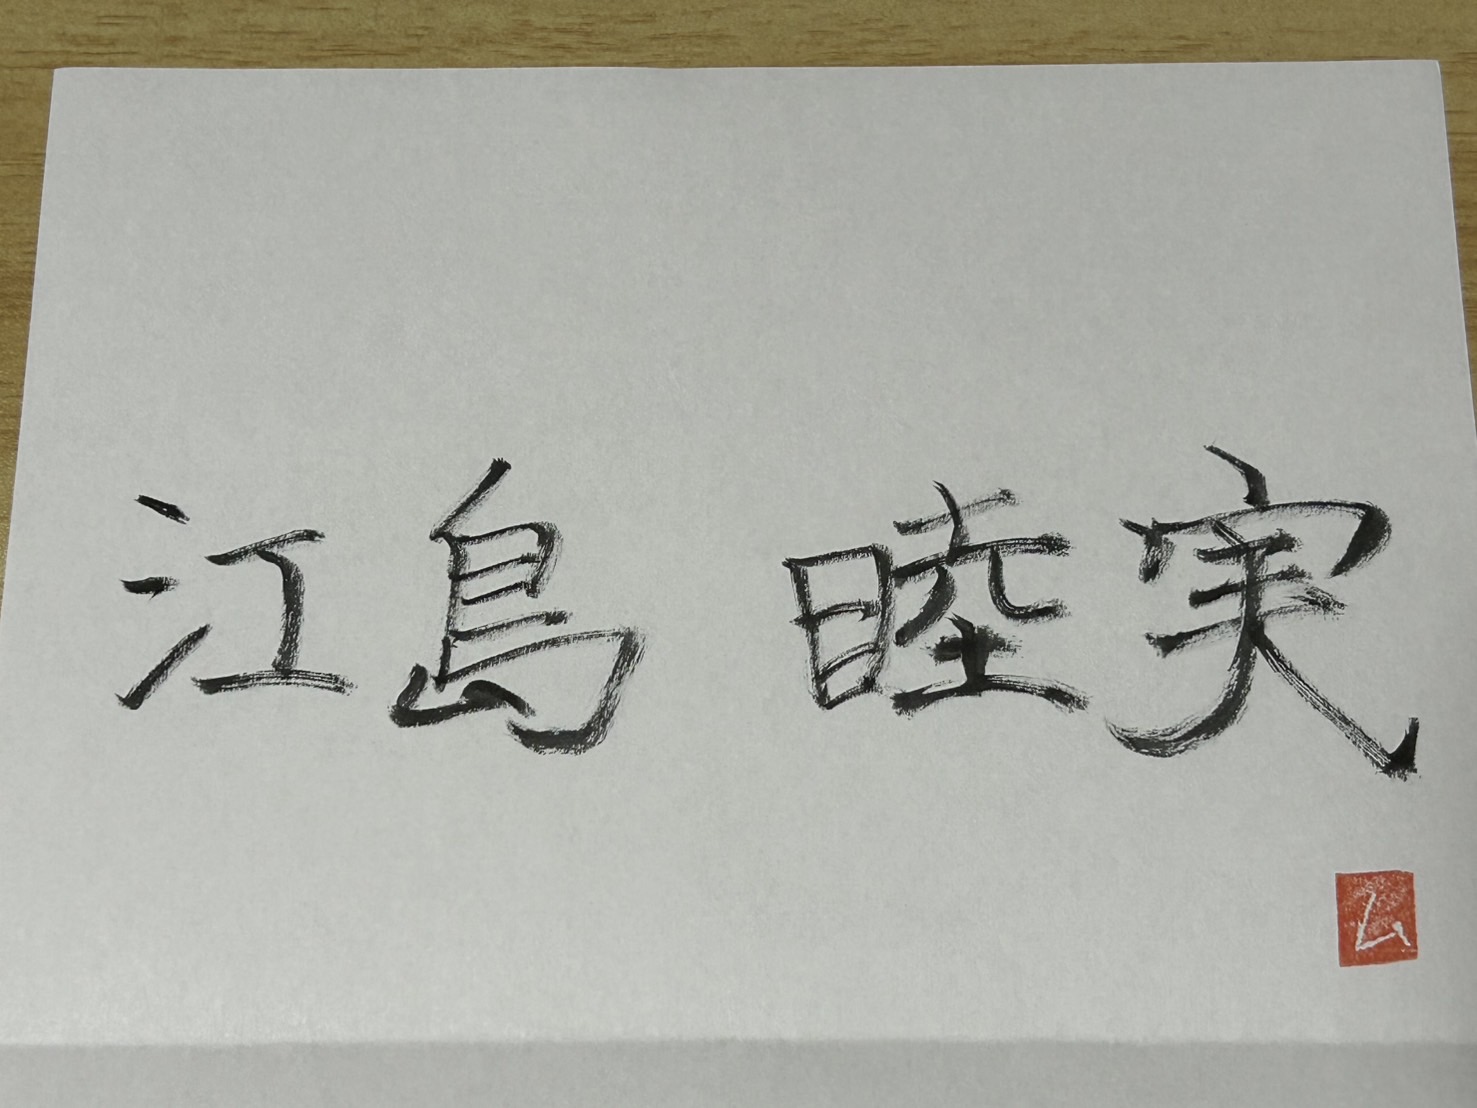 江島 睦実
ム